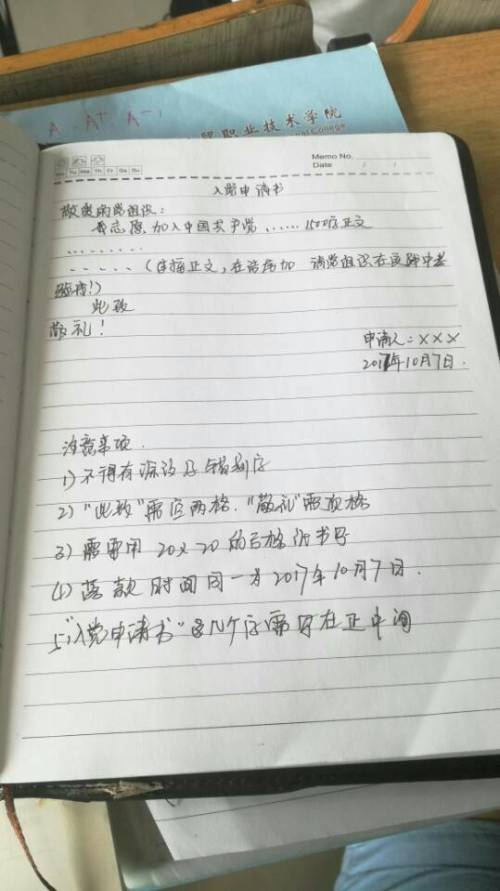 A A+ A-
职业技术学院
Memo No.
Date
Mo Tu We Th Fr Sa Su
入党申请书
敬爱的党组织：
我志愿加入中国共产党，……1500字正文
………
……（连接正文，在结尾加 请党组织在实践中考
验我！）
此致
敬礼！
申请人：×××
2017年10月7日.
注意事项.
1) 不得有涂改及错别字
2) "此致"需空两格."敬礼"需顶格
3) 需要用 20×20 的方格
4) 落款时间同一为 2017年10月7日.
5) "入党申请书"这几个字需写在正中间